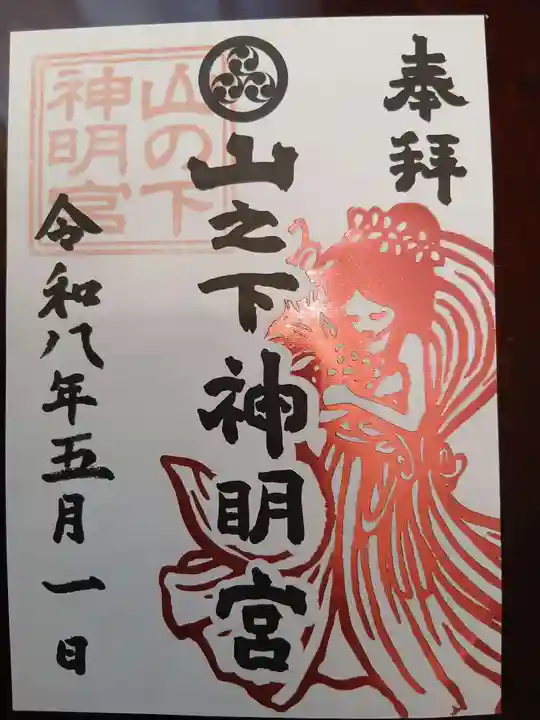 奉拝
山之下神明宮
山の下
神明宮
令和八年五月一日